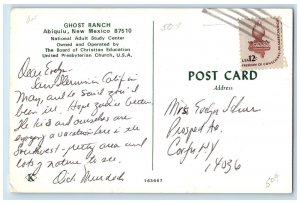 GHOST RANCH
Abiquiu, New Mexico 87510
National Adult Study Center
Owned and Operated by
The Board of Christian Education
United Presbyterian Church, U.S.A.
Dear Evelyn
Saw in Calif in
May, and he said you'd
been ill. Hope you're better.
The kids and ourselves are
enjoying a vacation here in the
Southwest - pretty area and
lots of nature to see.
Dick Murdoch
K
163667
POST CARD
Address
Mrs. Evelyn
Prospect Ave.
Corfu NY
14036
12c
509